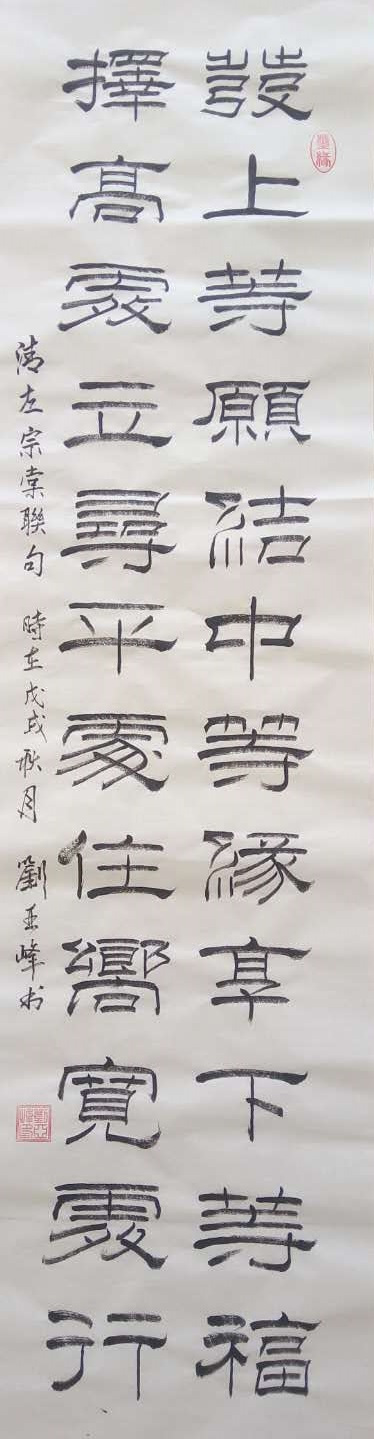 發上等願結中等緣享下等福
擇高處立尋平處住嚮寬處行
清左宗棠聯句 時在戊戌秋月 劉亚峰书